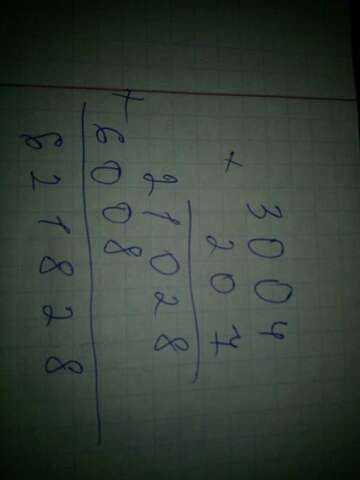 3004
× 207
21028
+ 6008
621828